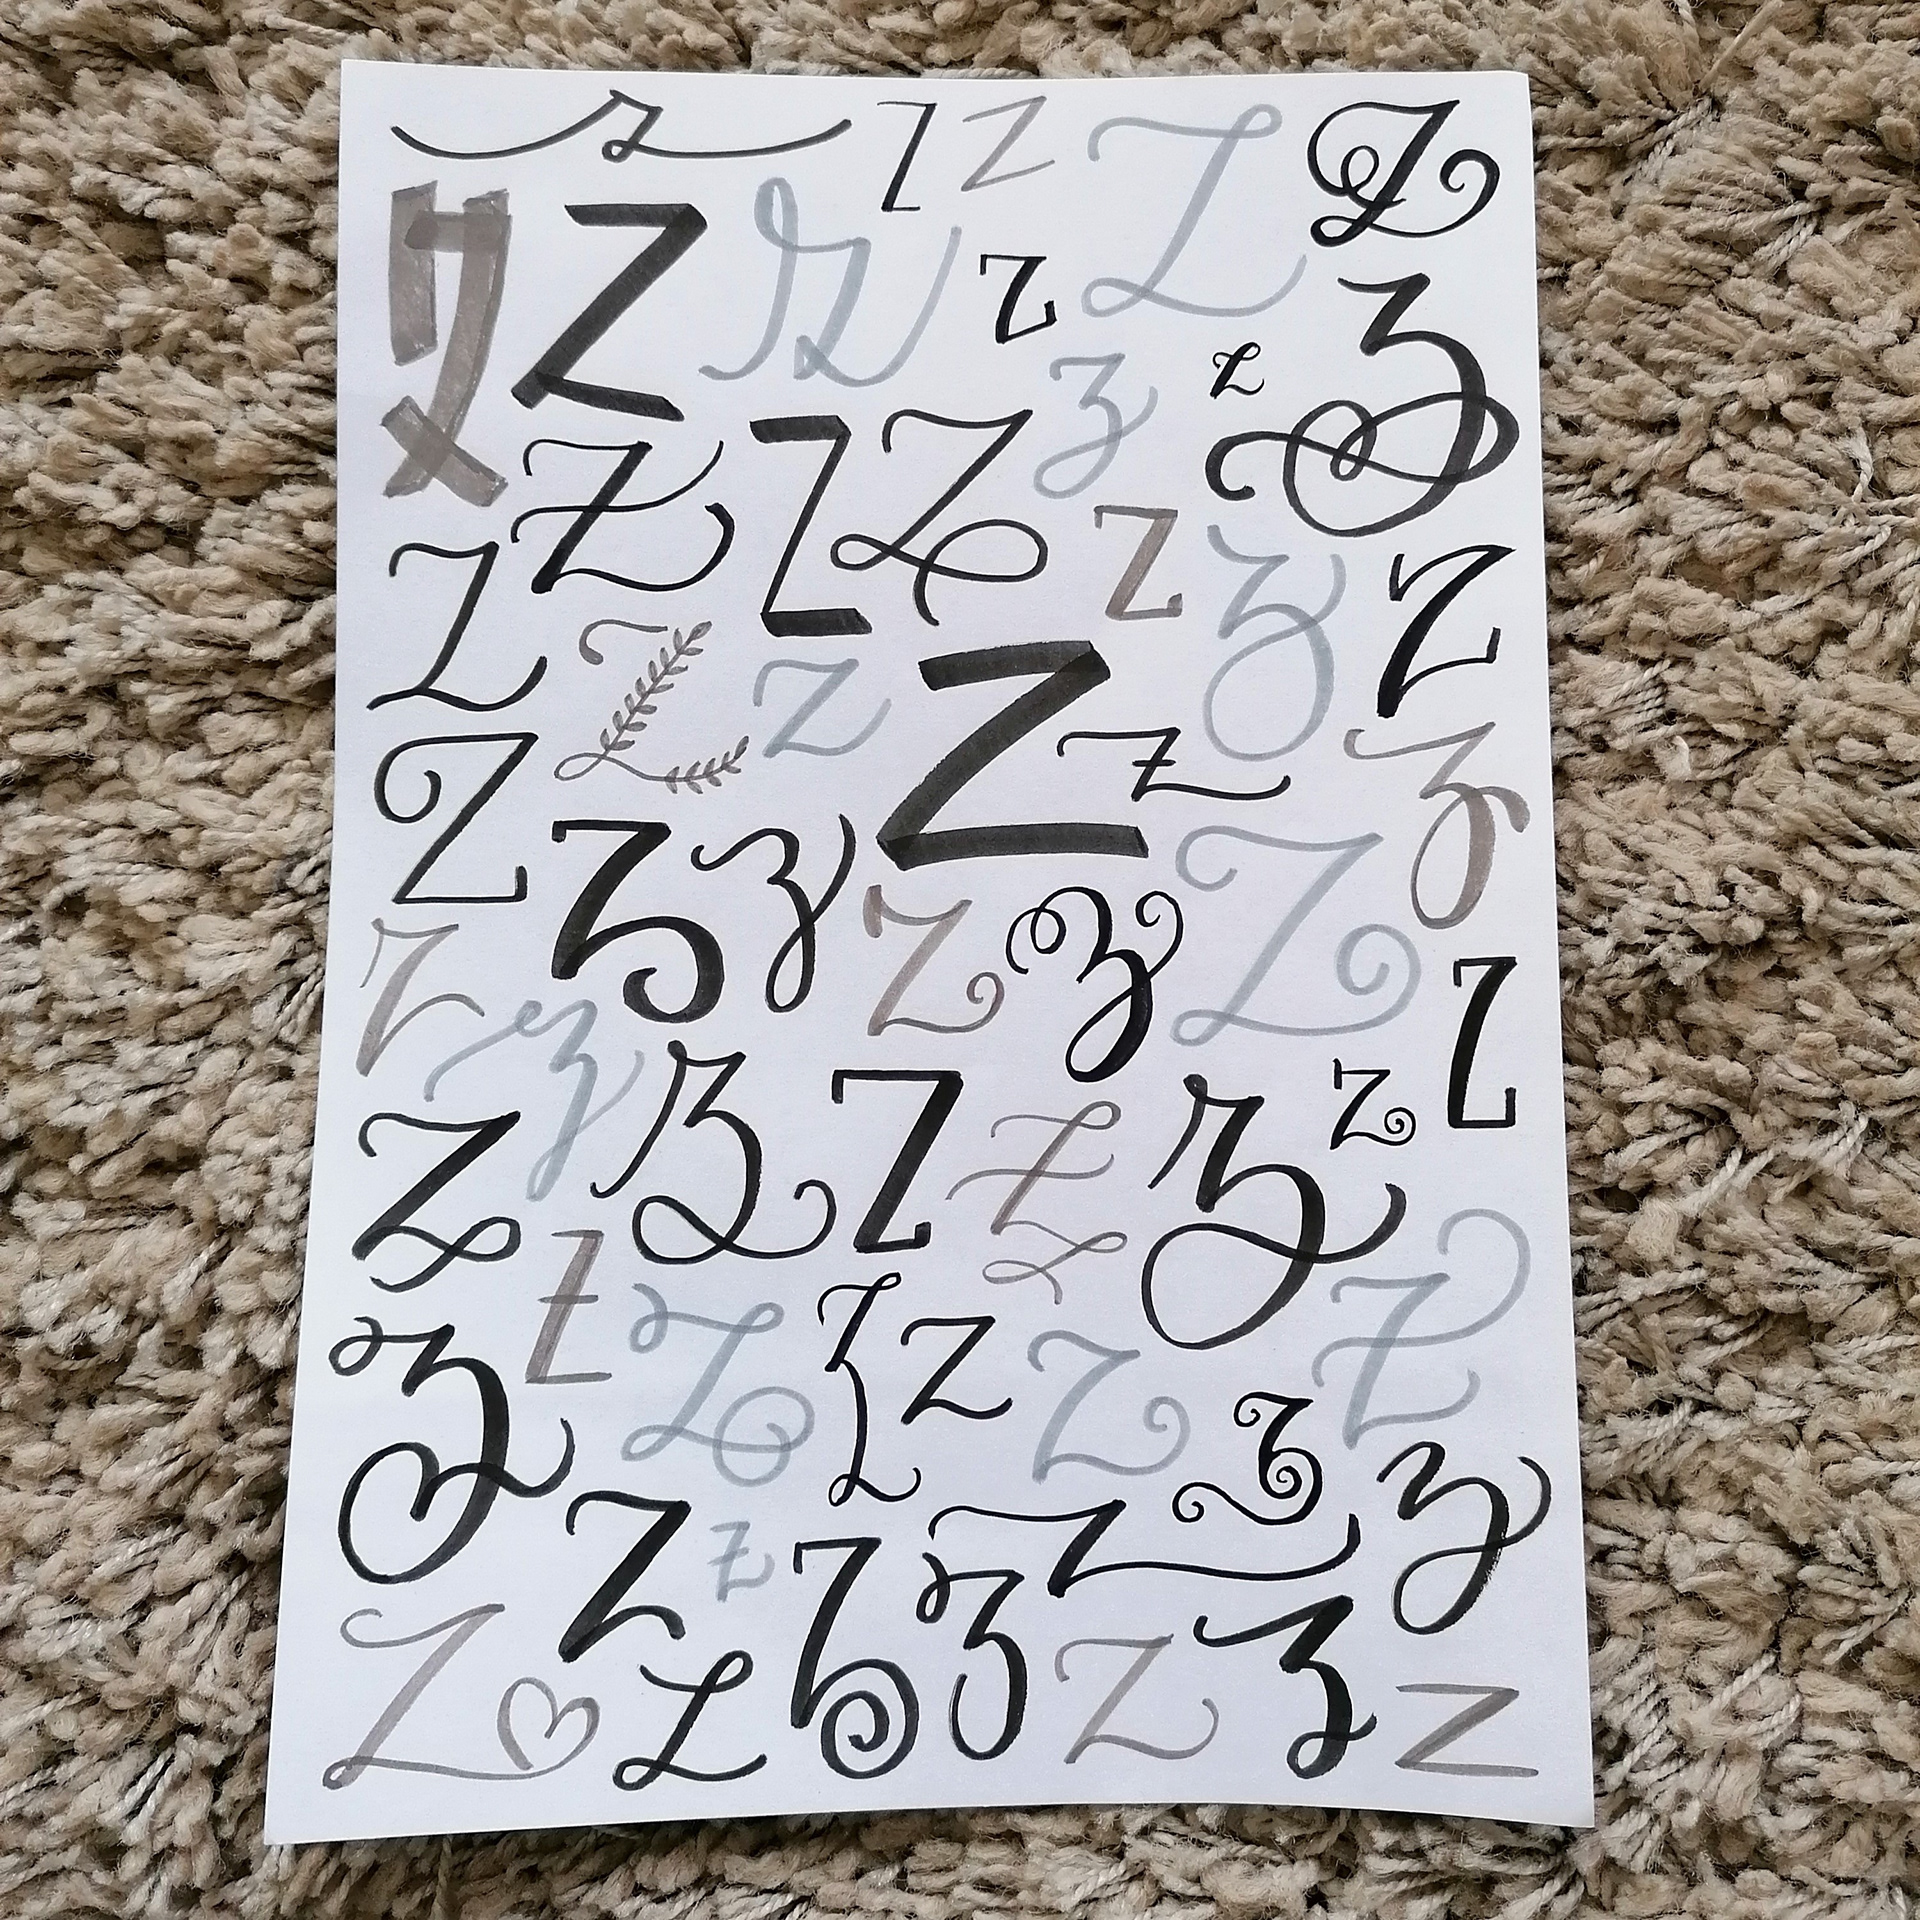 z Z Z Z Z
Z Z z Z
Z z z z
Z Z Z z
Z Z z Z
Z z Z z
Z Z z z Z z
Z Z z Z Z
z z z Z
Z Z Z Z z
z Z Z Z Z
z Z z z z
Z z Z z Z
Z Z z Z z Z